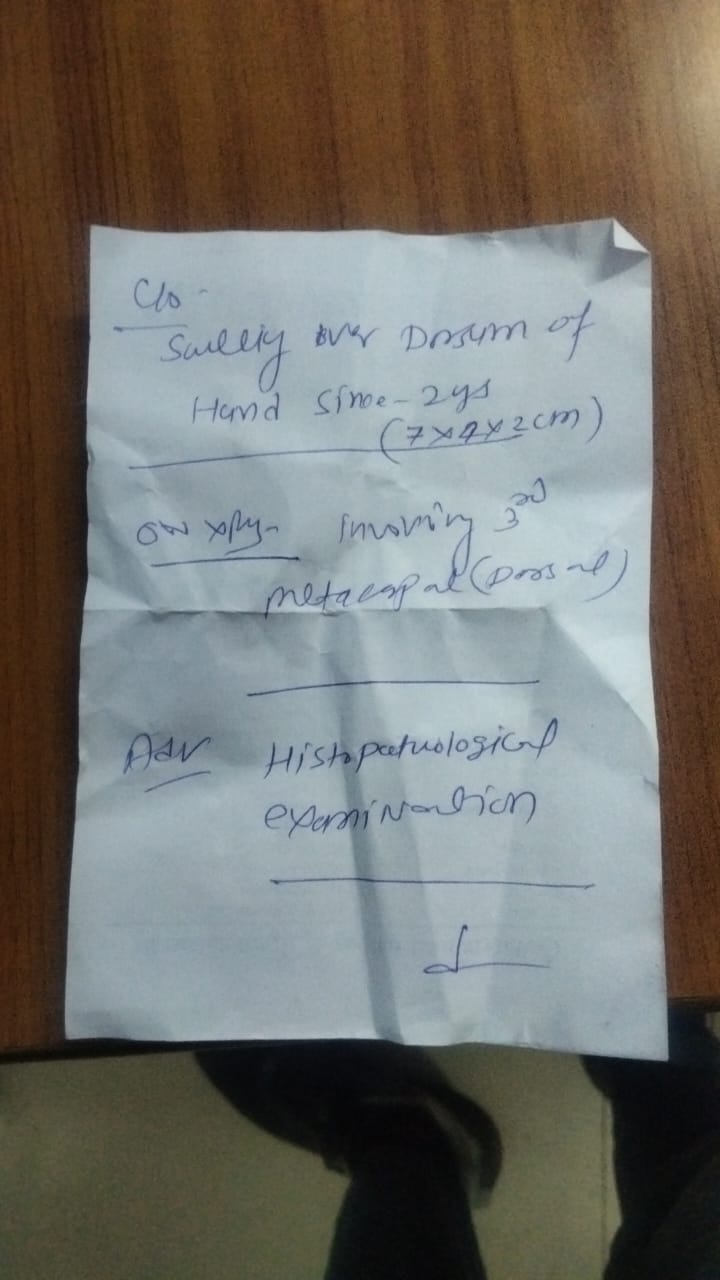 C/o -
Swelling over Dorsum of
Hand since - 2 yrs
(7x4x2cm)
on x-ray - involving 3rd
metacarpal (Dorsal)
Adv Histopathological
examination